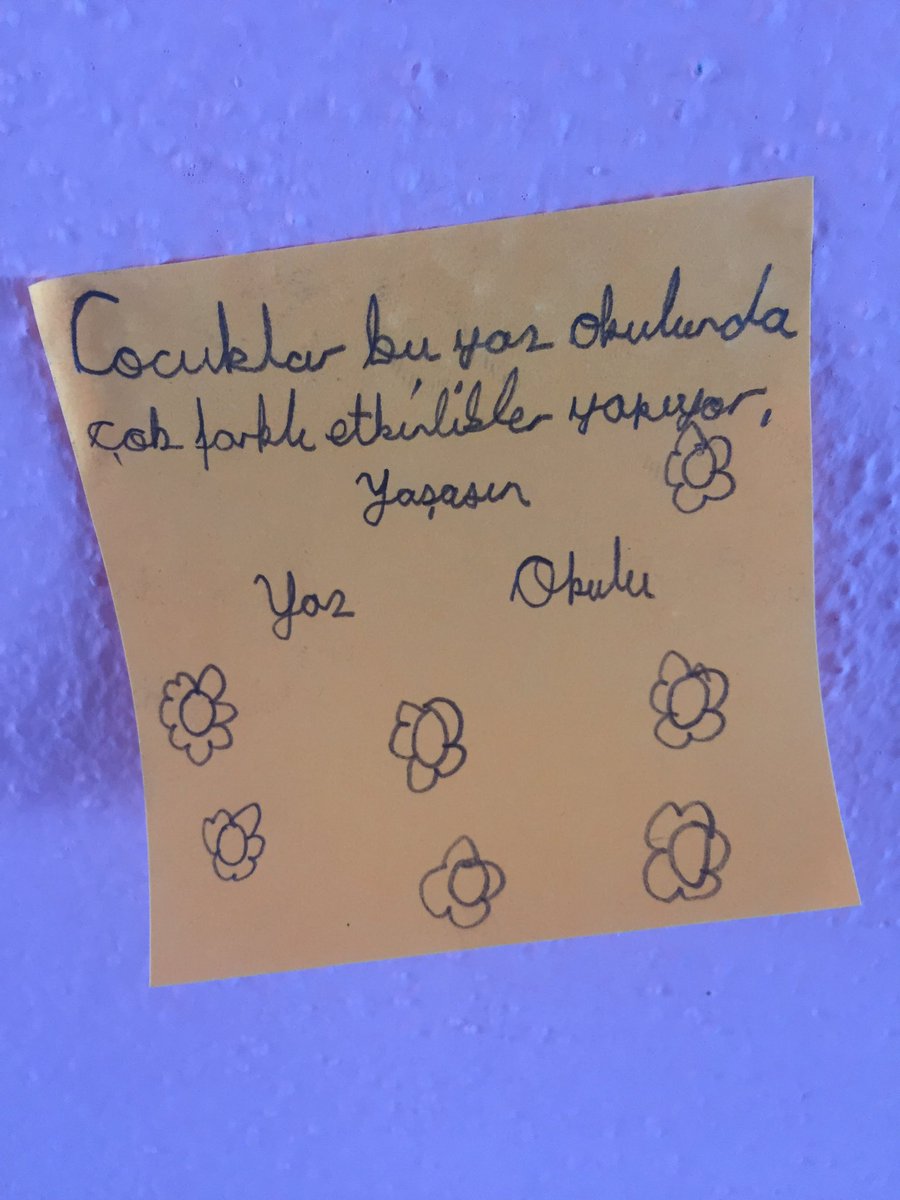 Çocuklar bu yaz okulunda
çok farklı etkinlikler yapıyor.
Yaşasın
Yaz Okulu